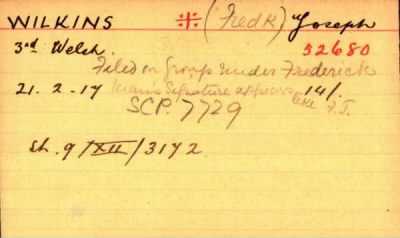 WILKINS (Fredk) Joseph
3rd Welsh. 52680
Filed on Group under Frederick
21. 2. 17 Man's Signature appears 14/.
SCP. 7729 like F.J.
Sh. 9/XII/3172.